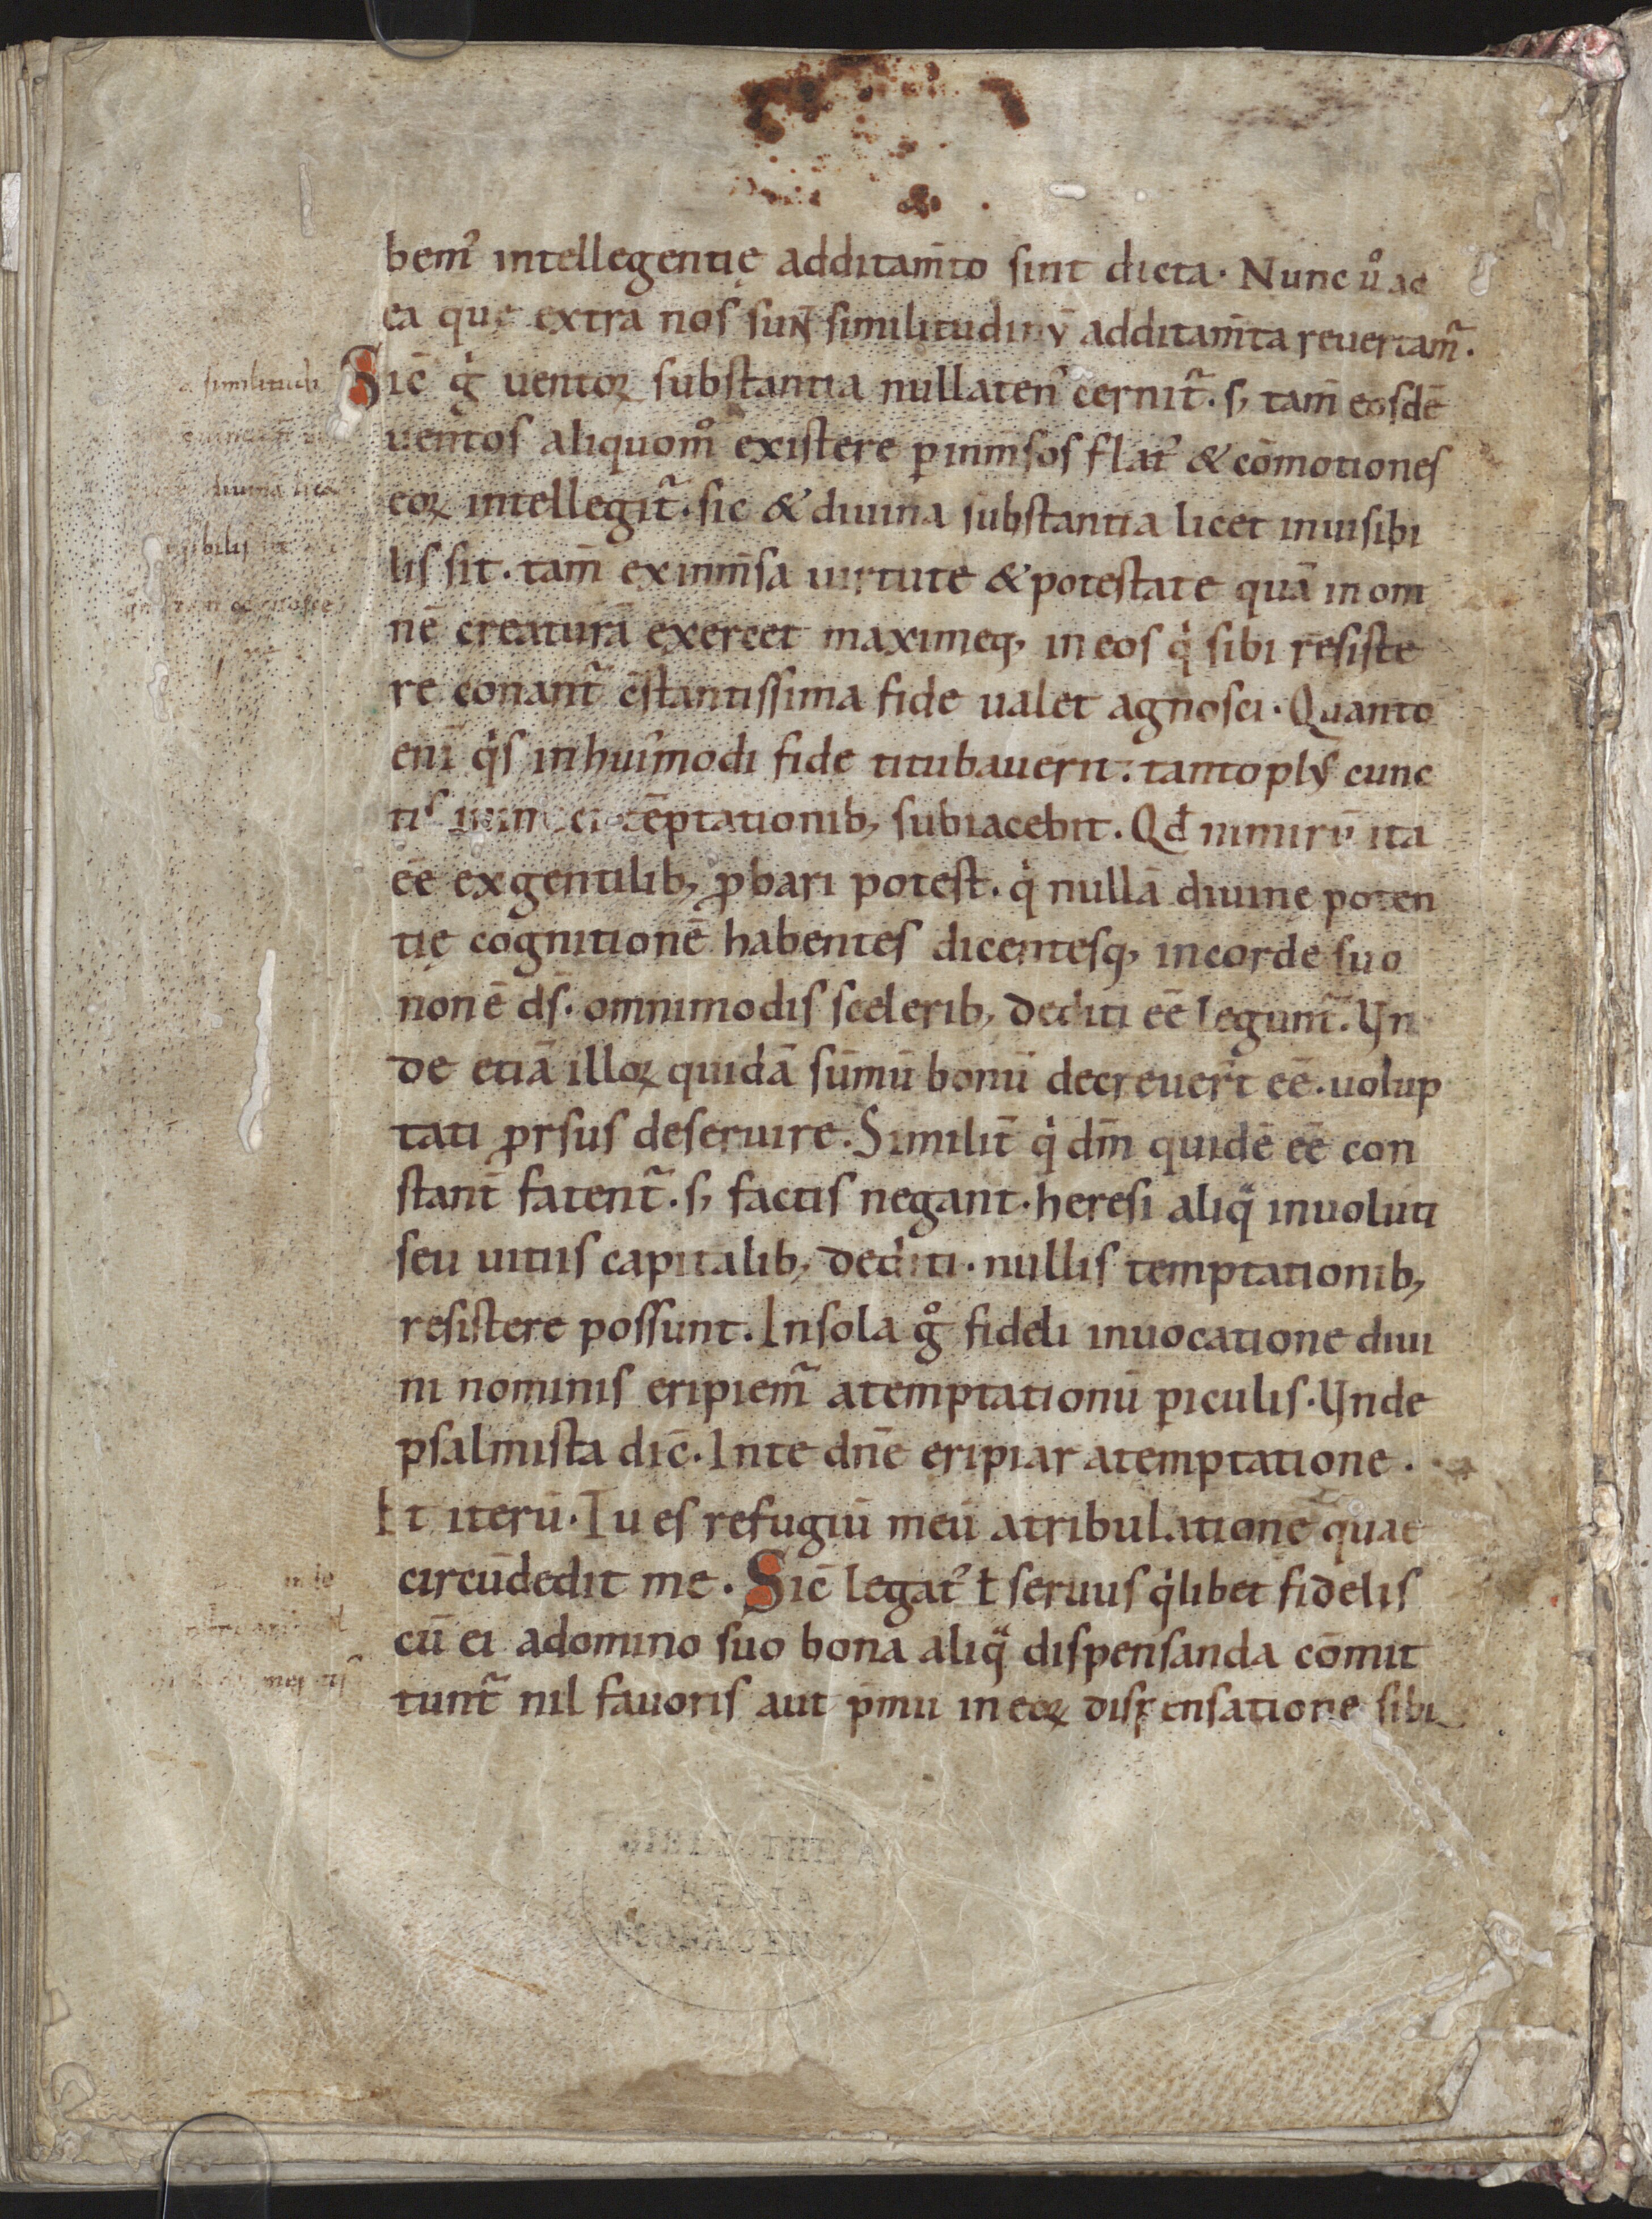 bemꝰ intellegentię additam̄to sint dicta. Nunc ů ad
ea quę extra nos sunt similitudinū additam̄ta reuertam̃.
a similitudi
Sic̄ g̊ uentoꝝ substantia nullatenꝰ cernit̃. s; tam̄ eosdē
uentos aliquom̊ existere ꝑ inm̄sos flatꝰ & cōmotiones
eoꝝ intellegit̃. sic & diuina substantia licet inuisibi
lis sit. tam̄ ex inm̄sa uirtute & potestate quā in om
nē creaturā exercet maximeq; in eos qͥ sibi resiste
re conant̃ c̄stantissima fide ualet agnosci. Quanto
eni̅ qͥs in huiꝰmodi fide titubauerit: tanto plꝰ cunc
tis inimici tēptationib; subiacebit. Qđ nimirū ita
ēē ex gentilib; ꝓbari potest. qͥ nullā diuinę poten
tię cognitionē habentes dicentesq; in corde suo
non ē ds̄. omnimodis scelerib; dediti ēē legunt̃. Vn
de etiā illoꝝ quidā sūmū bonū decreuer̄t ēē. uolup
tati ꝓrsus deseruire. Similit̄ qͥ dm̄ quidē ēē con
stant̄ fatent̃. s; factis negant. heresi aliqᷓ inuoluti
seu uitiis capitalib; dediti. nullis temptationib;
resistere possunt. In sola g̊ fideli inuocatione diui
ni nominis eripiem̃ a temptationū ꝑiculis. Vnde
psalmista dic̄. In te dn̄e eripiar a temptatione.
Et iterū. Tu es refugiū meū a tribulatione quae
circūdedit me. Sic̄ legatꝰ ł seruus qͥlibet fidelis
cū ei a domino suo bona aliqᷓ dispensanda cōmit
tunt̃ nil fauoris aut p̄mii in eoꝝ dispensatione sibi